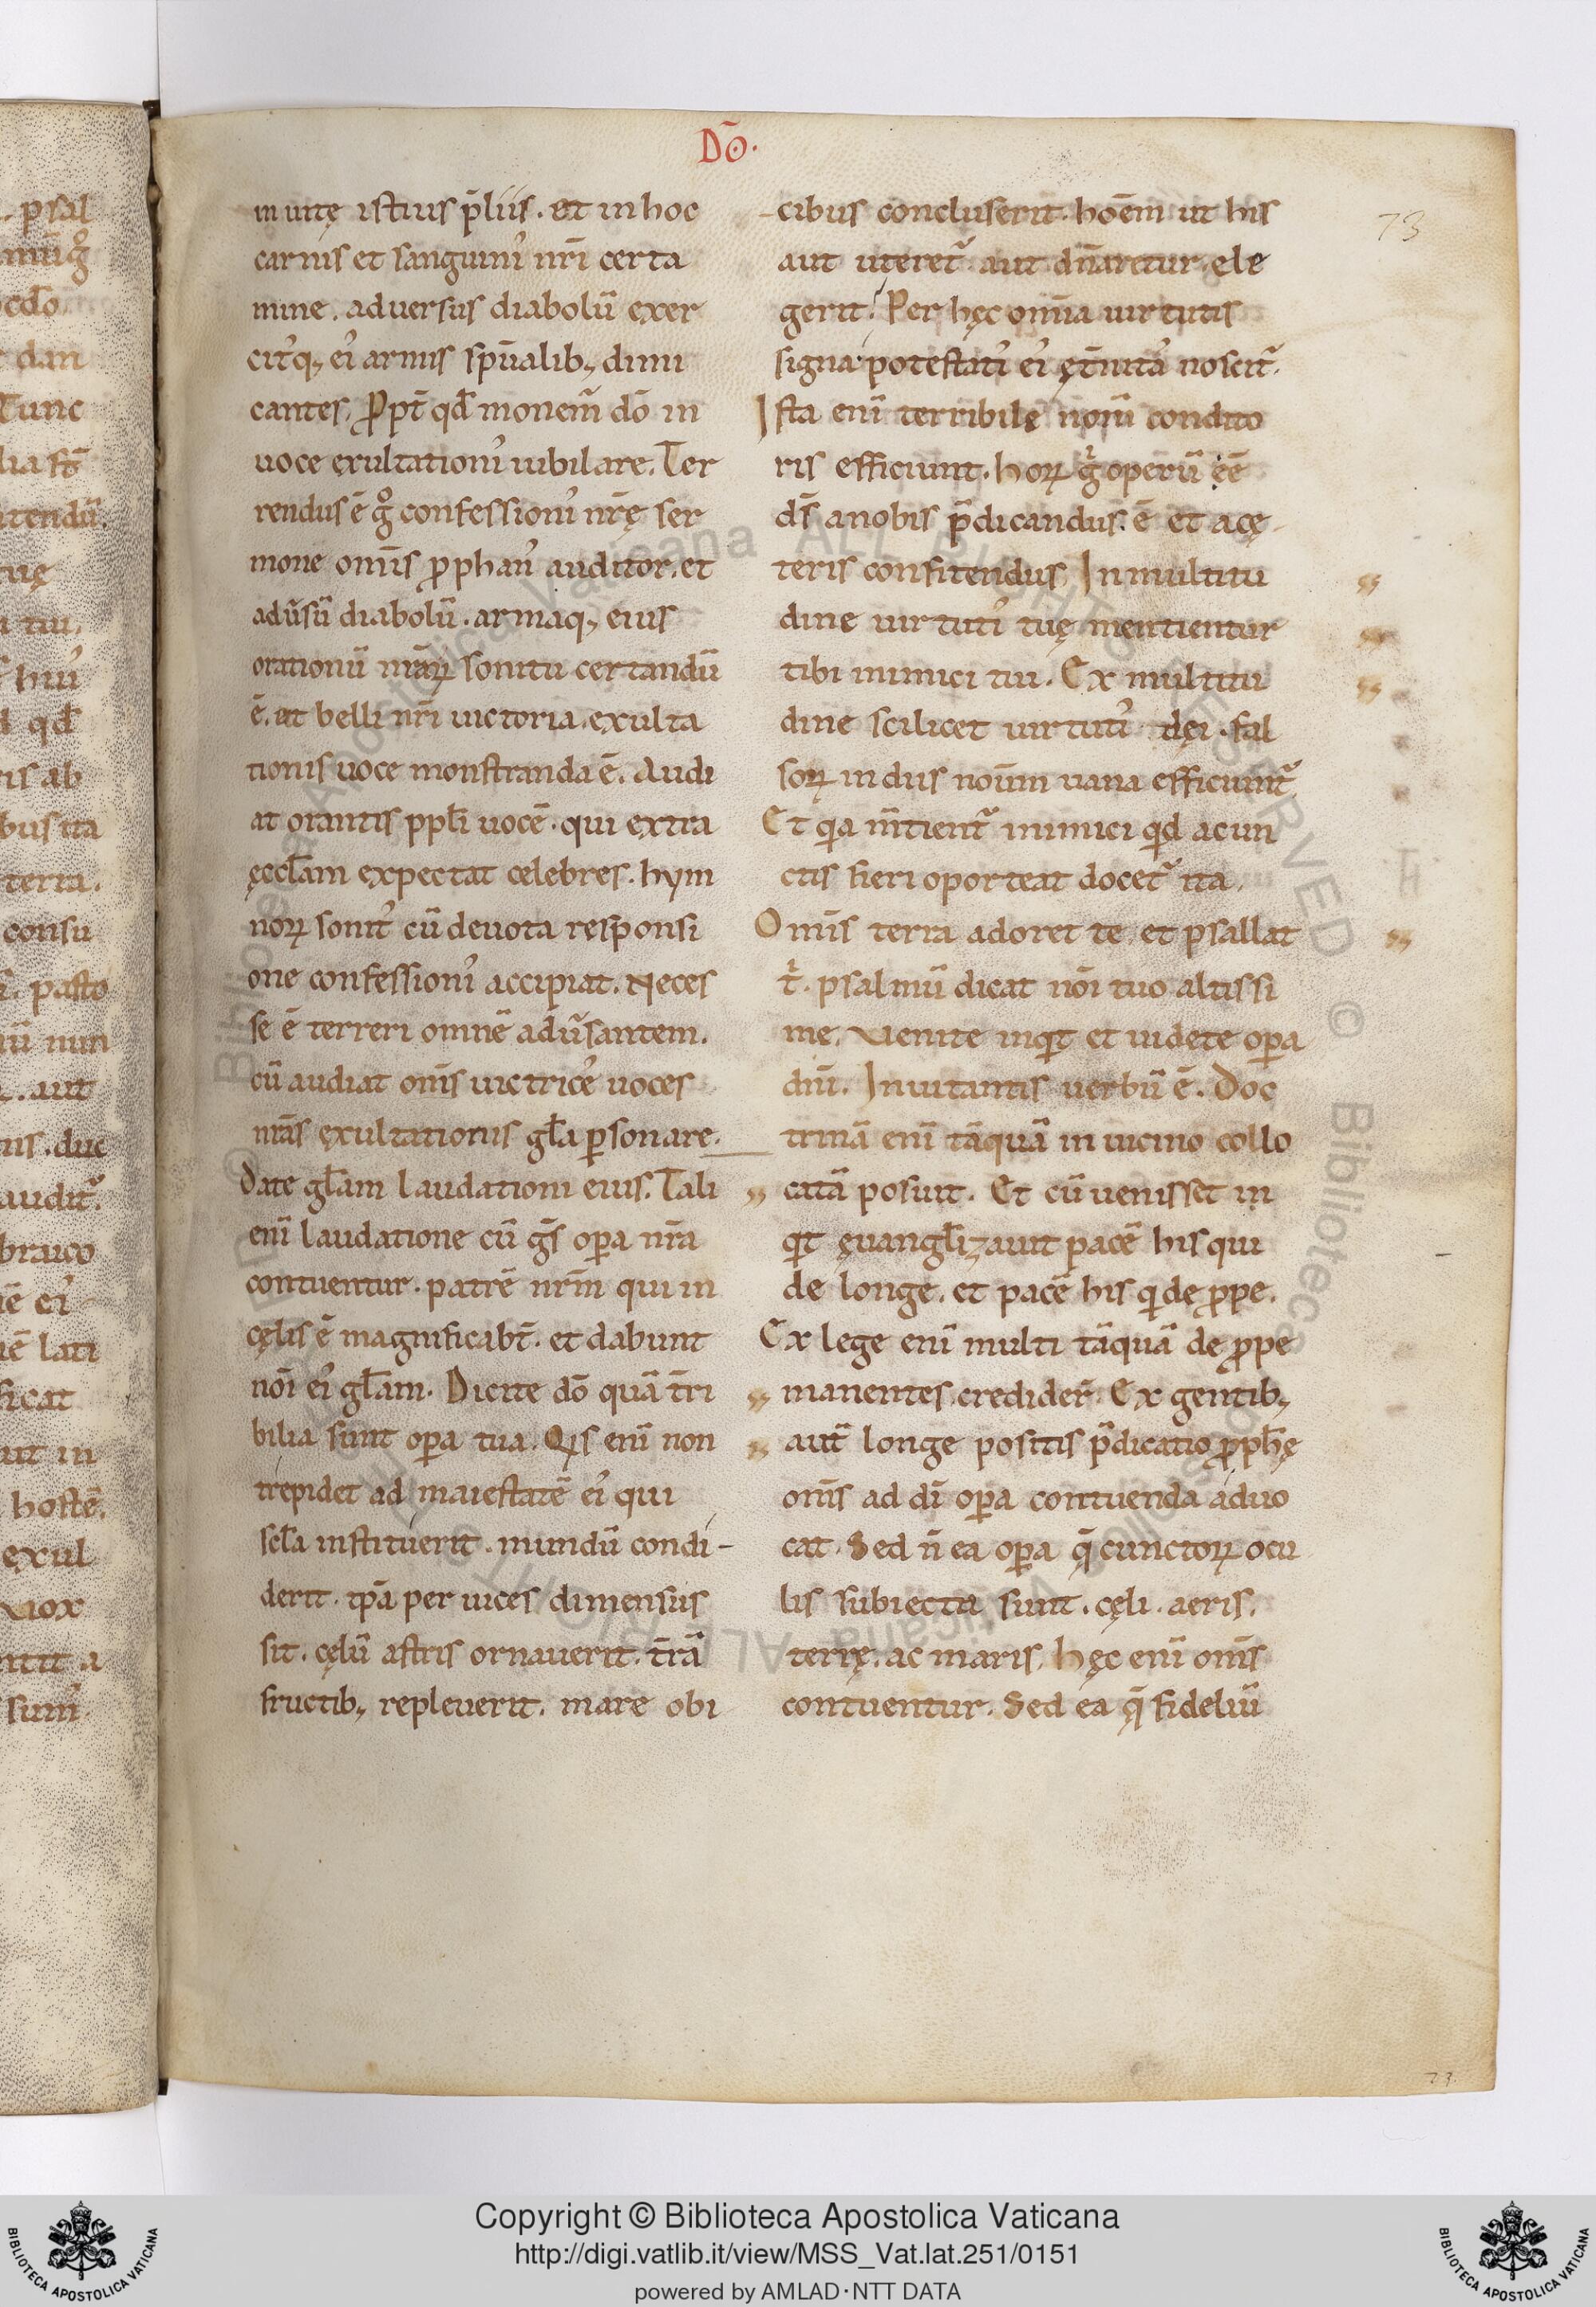 Dō.
in uitę istius p̄liis. et in hoc
carnis et sanguinis nr̄i certa
mine. aduersus diabolū exer
cit'q; ei' armis sp̄ualib; dimi
cantes. Ꝓpt̄ qd̄ monem̄ dō in
uoce exultationis iubilare. Ter
rendus ē gͦ confessionis nr̄ę ser
mone omīs ꝓphan' auditor. et
adūsū diabolū. armaq; eius
orationū nr̄aꝝ sonitu certandū
ē. et belli nr̄i uictoria. exulta
tionis uoce monstranda ē. Audi
at orantis ppl̄i uocē. qui extra
ęccl̄am expectat celebres. hym
noꝝ sonit' cū deuota responsi
one confessionis accipiat. Neces
se ē terreri omnē adūsantem.
cū audiat omīs uictrices uoces
nr̄as exultationis gl̄a ꝑsonare.
Date gl̄am laudationi eius. Tali
enī laudatione cū gs̄ oꝑa nr̄a
contuentur. patrē nr̄m qui in
cęlis ē magnificabt̄. et dabunt
nōi ei' gl̄am. Dicite dō quā t̄ri
bilia sunt oꝑa tua. Qis enī non
trepidet ad maiestatē ei' qui
scl̄a instituerit. mundū condi-
derit. tp̄a per uices dimensus
sit. cęlū astris ornauerit. t̄rā
fructib; repleuerit. mare obi
cibus concluserit. hoēm ut his
aut uteret᷑ aut dn̄aretur ele
gerit. Per hęc omīa uirtutis
signa potestatis ei' ęt̄nitas noscit᷑.
Ista enī terribile nom̄ condito
ris efficiunt. hoꝝ gͥ operū ēē
ds̄ a nobis p̄dicandus ē et a cę
teris confitendus. In multitu
dine uirtutis tuę mentientur
tibi inimici tui. Ex multitu
dine scilicet uirtutis dęi. fal
soꝝ in diis noīum uana efficiunt᷑
Et qia m̄tient᷑ inimici qid a cun
ctis fieri oporteat docet᷑ ita.
Omīs terra adoret te et psallat
tͥ. psalmū dicat nōi tuo altissi
me. Uenite inqt et uidete oꝑa
dn̄i. Inuitantis uerbū ē. Doc
trinā enī tāquā in uicino collo
catā posuit. Et cū uenisset in
qt ęuangl̄izauit pacē his qui
de longe. et pacē his qi de ꝓpe.
Ex lege enī multi tāquā de ꝓpe
manentes credider̄. Ex gentib;
aut̄ longe positis p̄dicatio ꝓph̄ę
omīs ad dī oꝑa contuenda aduo
cat. Sed n̄ ea oꝑa q̄ cunctoꝝ ocu
lis subiecta sunt. cęli. aeris.
terrę. ac maris. hęc enī omīs
contuentur. Sed ea q̄ fideliū
73
73
Copyright © Biblioteca Apostolica Vaticana
http://digi.vatlib.it/view/MSS_Vat.lat.251/0151
powered by AMLAD·NTT DATA
BIBLIOTECA APOSTOLICA VATICANA
BIBLIOTECA APOSTOLICA VATICANA